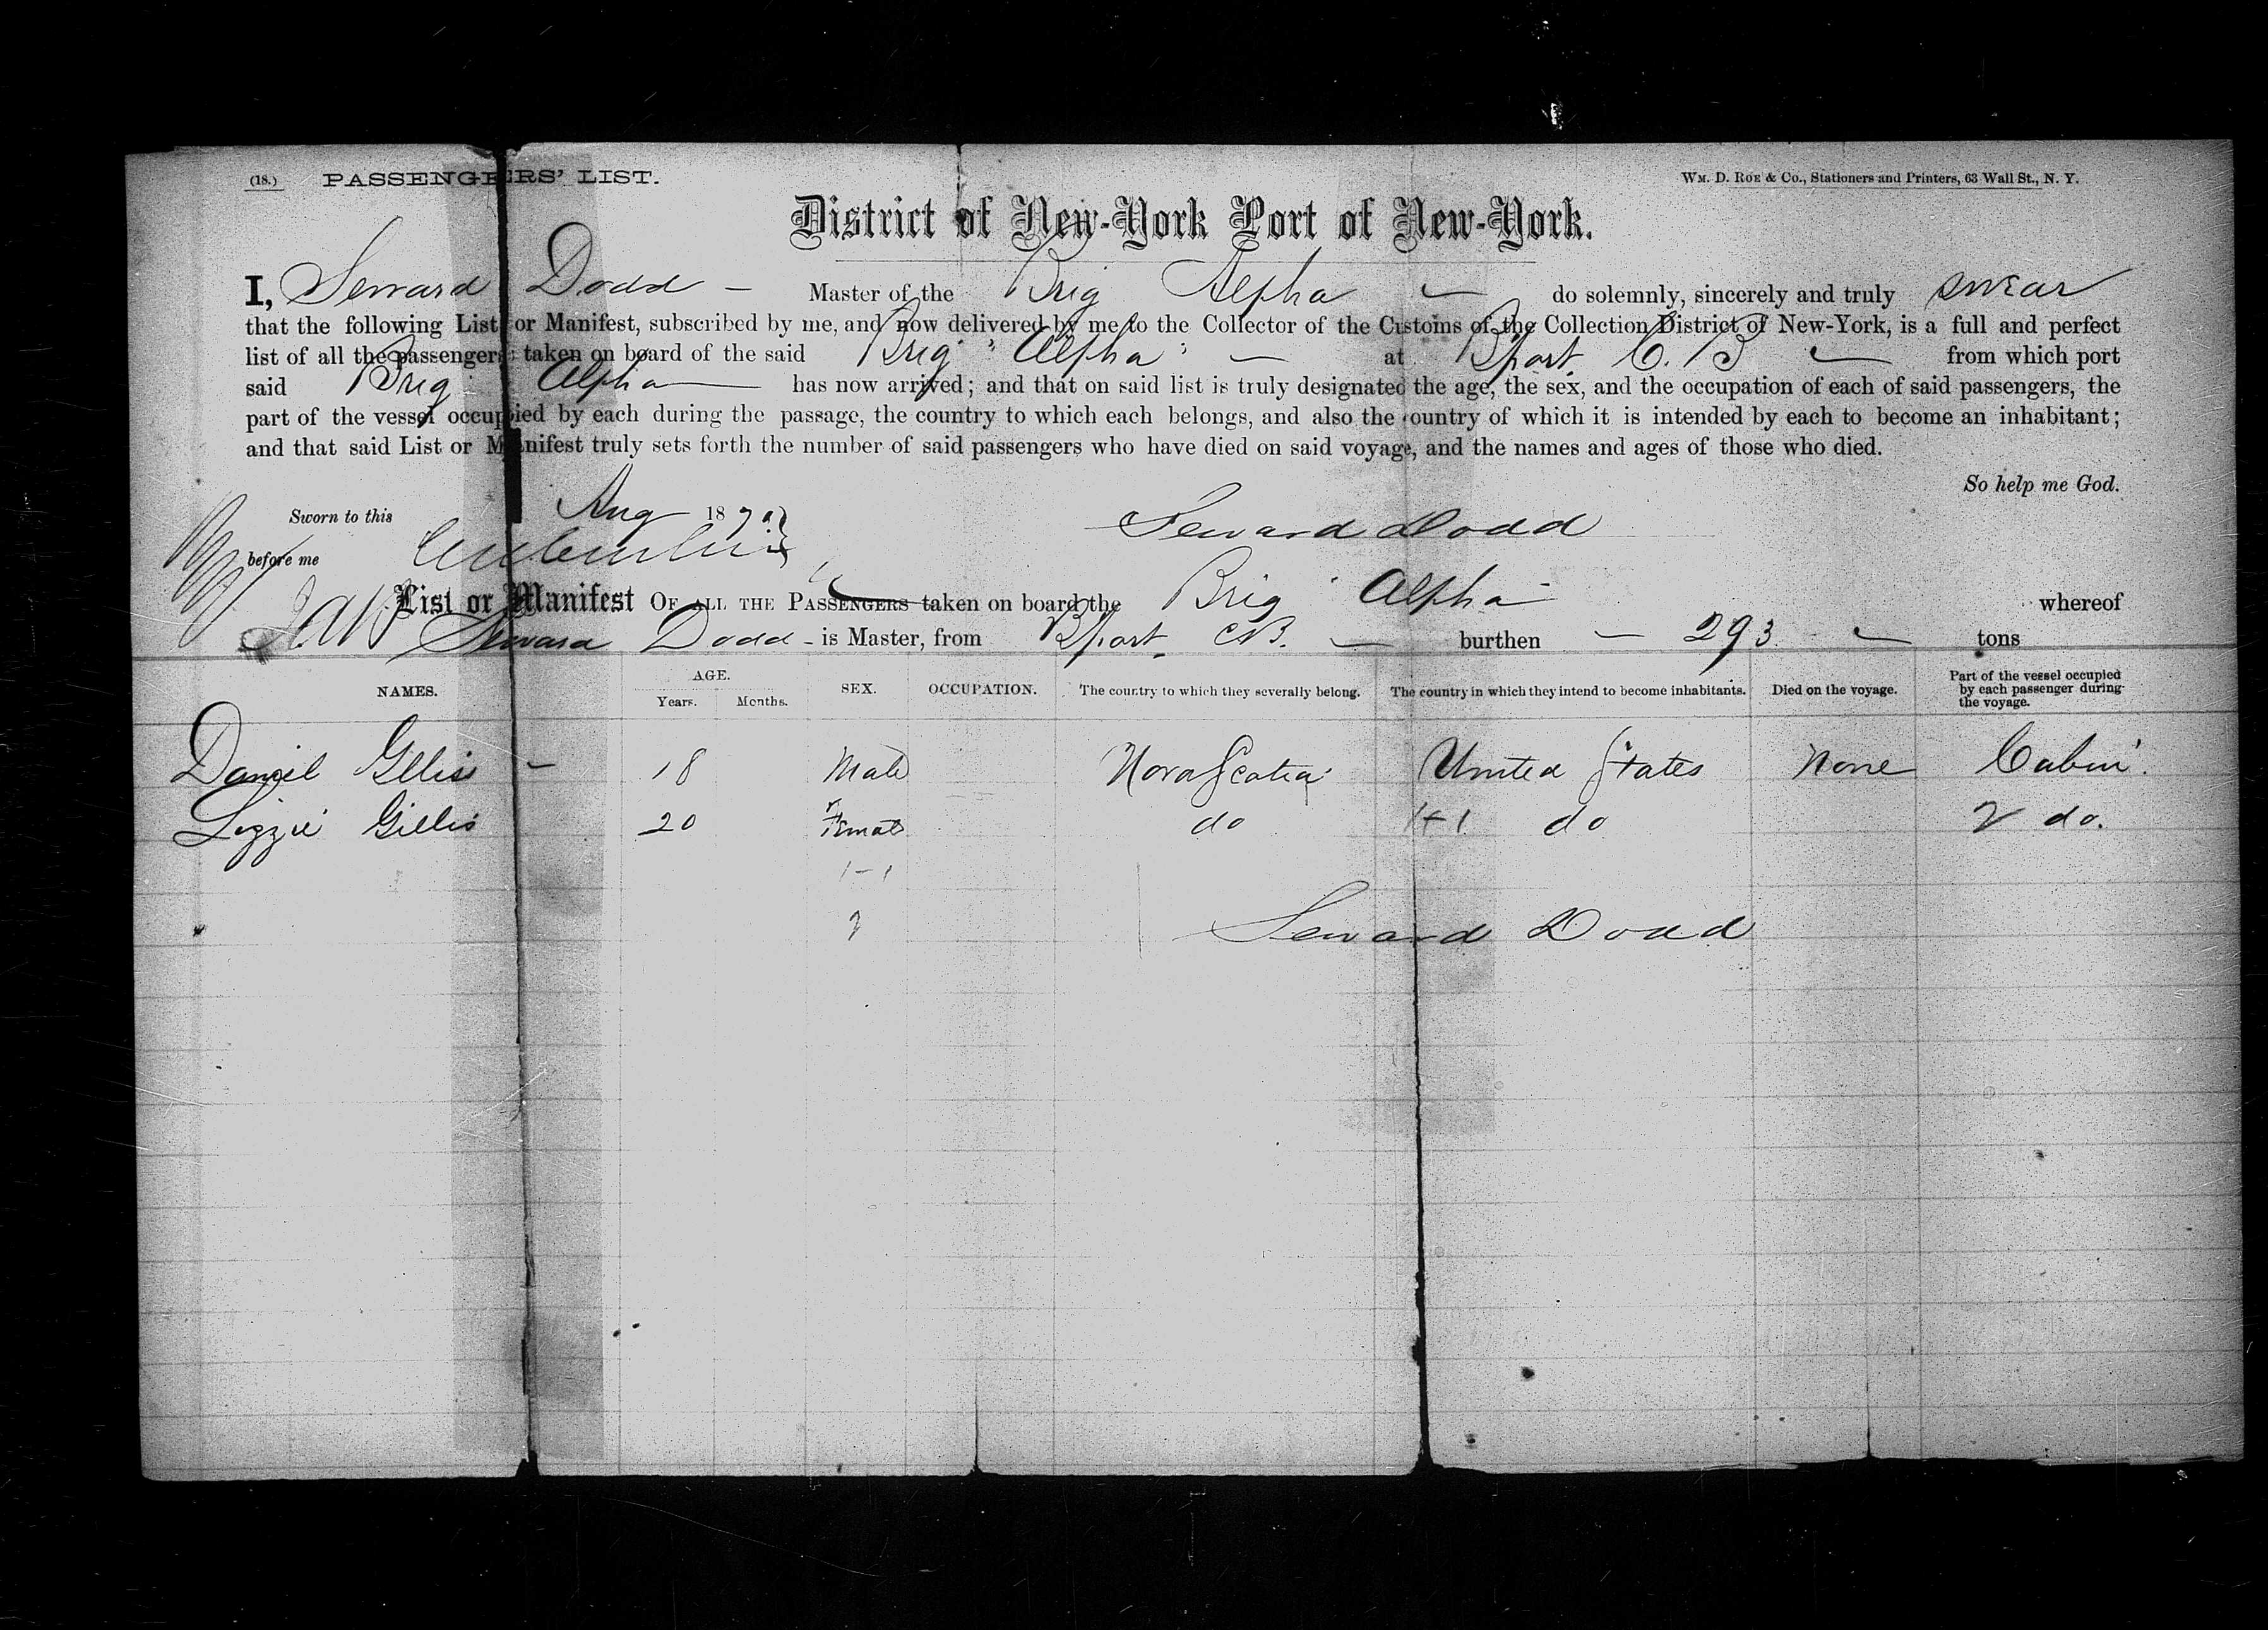 (18.) PASSENGERS' LIST.
Wm. D. Roe & Co., Stationers and Printers, 63 Wall St., N. Y.
District of New-York Port of New-York.
I, Seward Dodd - Master of the Brig Alpha do solemnly, sincerely and truly swear
that the following List or Manifest, subscribed by me, and now delivered by me to the Collector of the Customs of the Collection District of New-York, is a full and perfect
list of all the passengers taken on board of the said Brig "Alpha" at Bport, C. B from which port
said Brig Alpha has now arrived; and that on said list is truly designated the age, the sex, and the occupation of each of said passengers, the
part of the vessel occupied by each during the passage, the country to which each belongs, and also the country of which it is intended by each to become an inhabitant;
and that said List or Manifest truly sets forth the number of said passengers who have died on said voyage, and the names and ages of those who died.
So help me God.
Sworn to this Aug 1870
Seward Dodd
before me
List or Manifest OF ALL THE PASSENGERS taken on board the Brig Alpha whereof
Seward Dodd - is Master, from Bport, CB. burthen - 293 tons
NAMES. AGE. Years. Months. SEX. OCCUPATION. The country to which they severally belong. The country in which they intend to become inhabitants. Died on the voyage. Part of the vessel occupied by each passenger during the voyage.
Daniel Gillis - 18 Male Nova Scotia United States None Cabin
Lizzie Gillis 20 Female do 1+1 do 2 do.
1-1
2
Seward Dodd